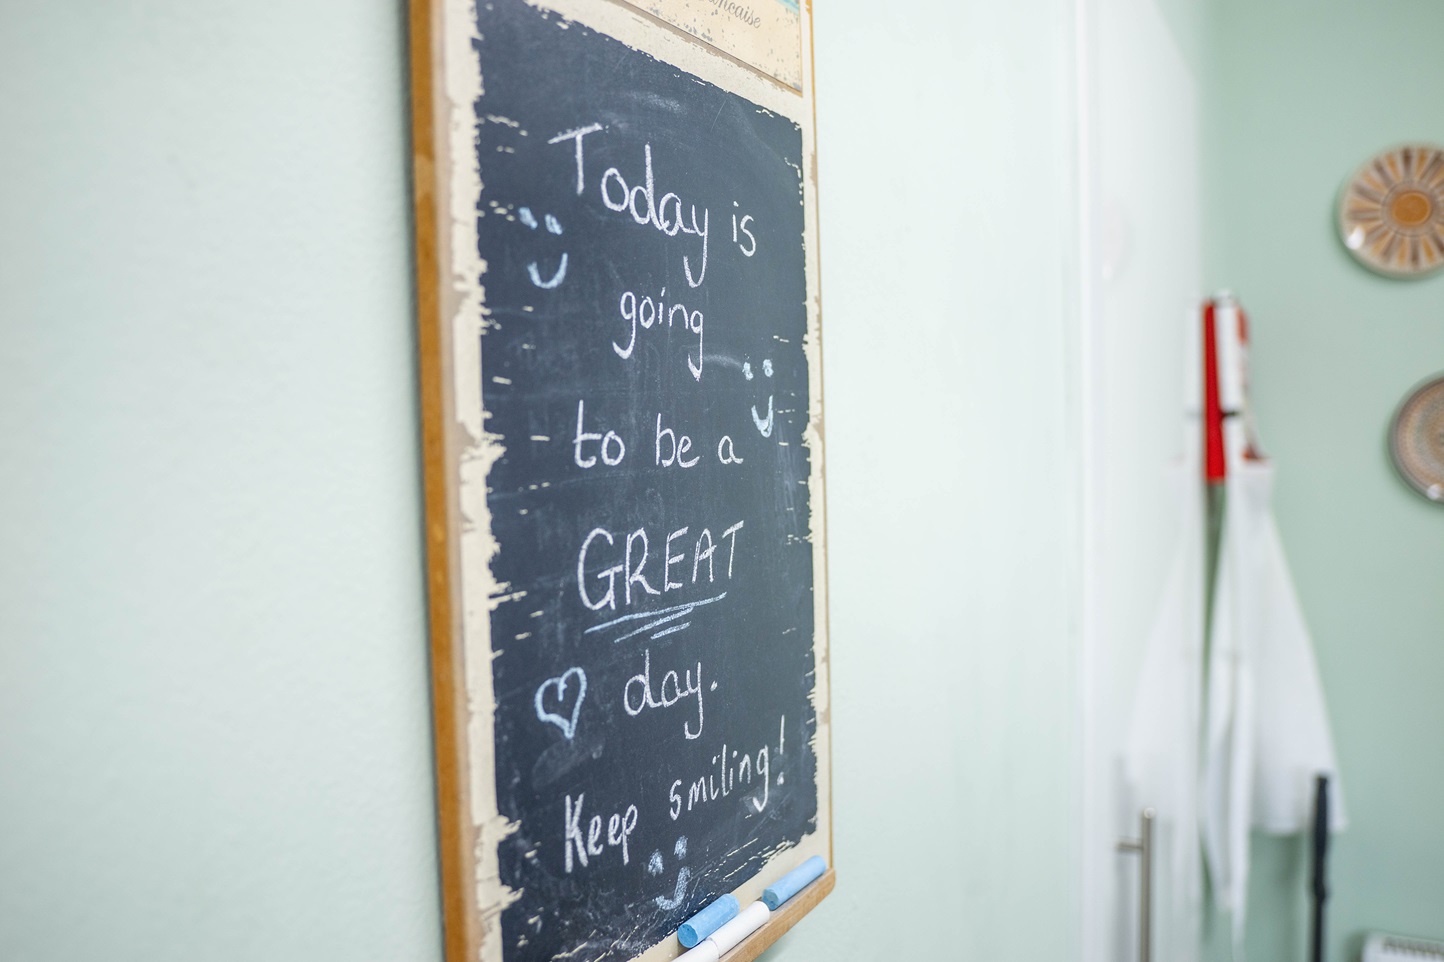 Today is
going
to be a
GREAT
day.
Keep smiling!